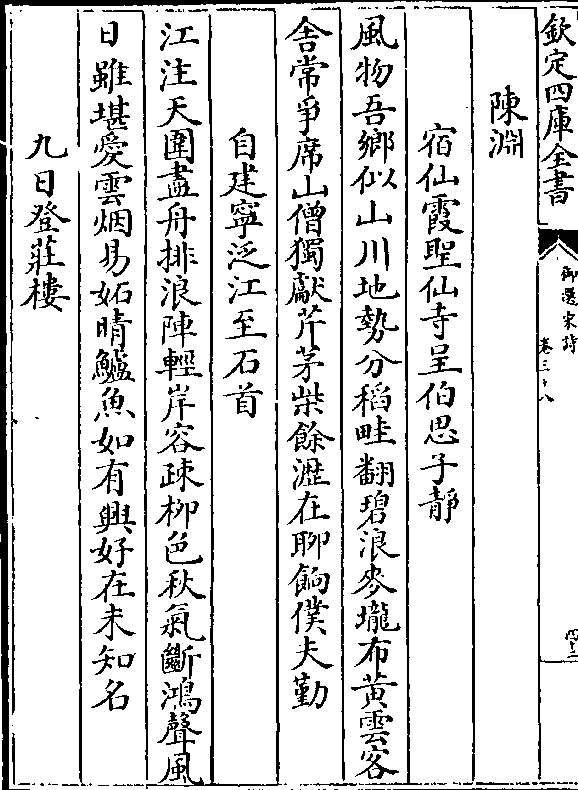 欽定四庫全書
御選宋詩
卷三十八
四十二
陳淵
宿仙霞聖仙寺呈伯思子靜
風物吾鄉似山川地勢分稻畦翻碧浪麥壠布黃雲客
舍常爭席山僧獨獻芹茅柴餘瀝在聊餉僕夫勤
自建寧泛江至石首
江注天圍盡舟排浪陣輕岸容疎柳色秋氣斷鴻聲風
日雖堪愛雲烟易妬晴鱸魚如有興好在未知名
九日登莊樓